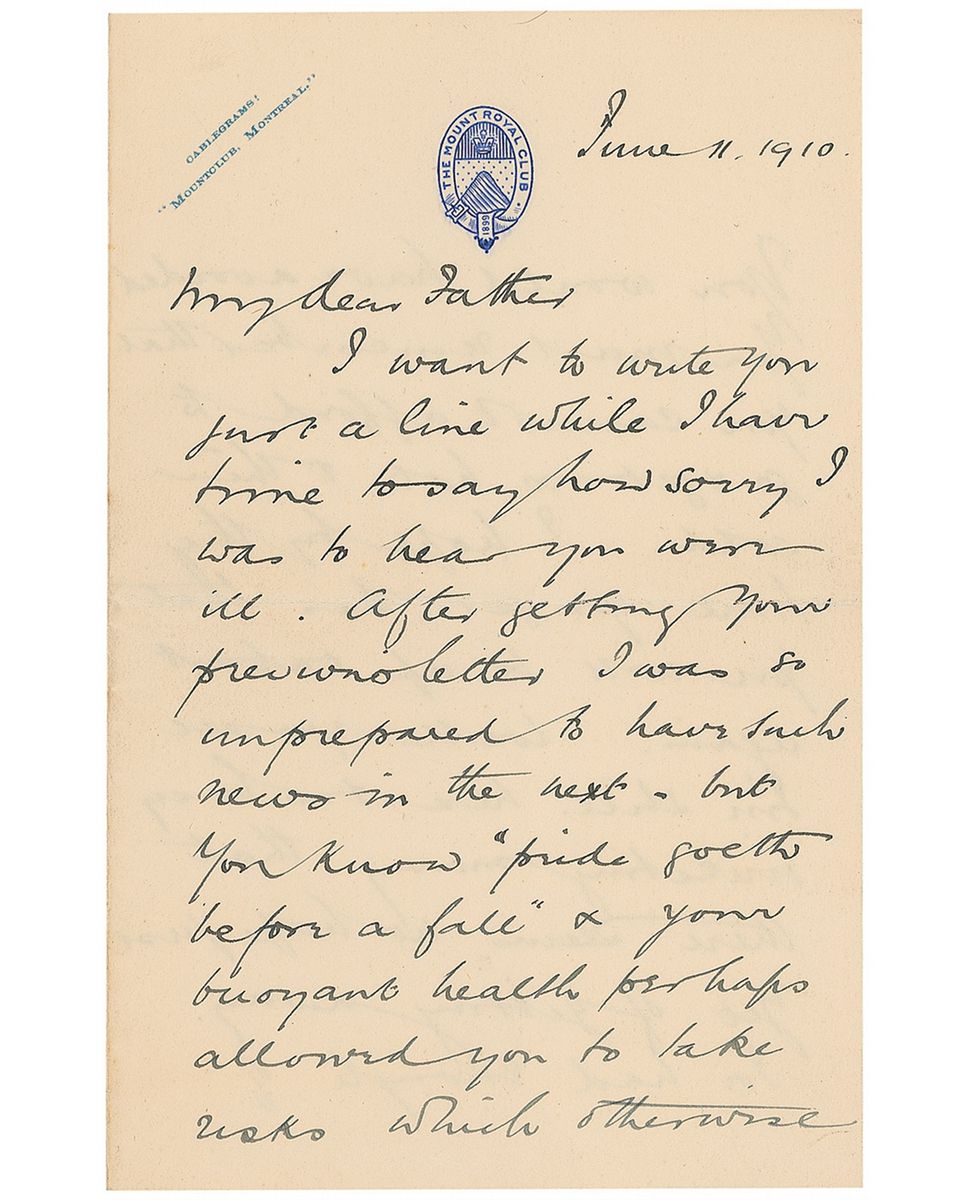 CABLEGRAMS:
"MOUNTCLUB, MONTREAL."
THE MOUNT ROYAL CLUB
1899
June 11. 1910.
My dear Father
I want to write you
just a line while I have
time to say how sorry I
was to hear you were
ill. After getting your
previous letter I was so
unprepared to have such
news in the next - but
you know "pride goeth
before a fall" & your
buoyant health perhaps
allowed you to take
risks which otherwise